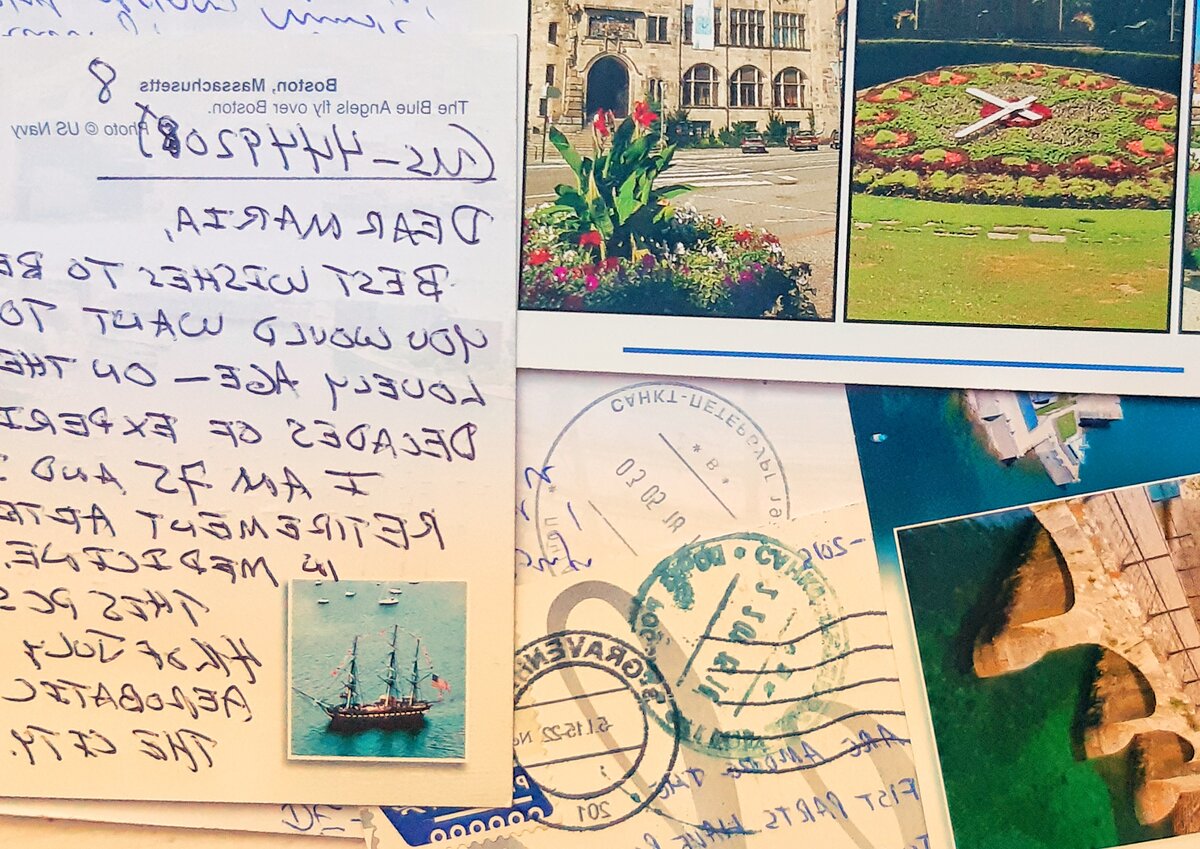 Boston, Massachusetts
The Blue Angels fly over Boston.
Photo © US Navy
8
(US-4449208)
DEAR MARIA,
BEST WISHES TO BE
YOU WOULD WANT TO
LOVELY AGE — ON THE
DECADES OF EXPERI
I AM 75 AND
RETIREMENT AFTE
IN MEDICINE.
THIS PCS
4th OF JULY
AEROBATIC
THE CITY.
САНКТ-ПЕТЕРБУРГ
* В *
03 02 18
-2015
САНК
'S GRAVENH
5.1.15-22
201
ARE AMONG THE
FIST PARTS HAVE